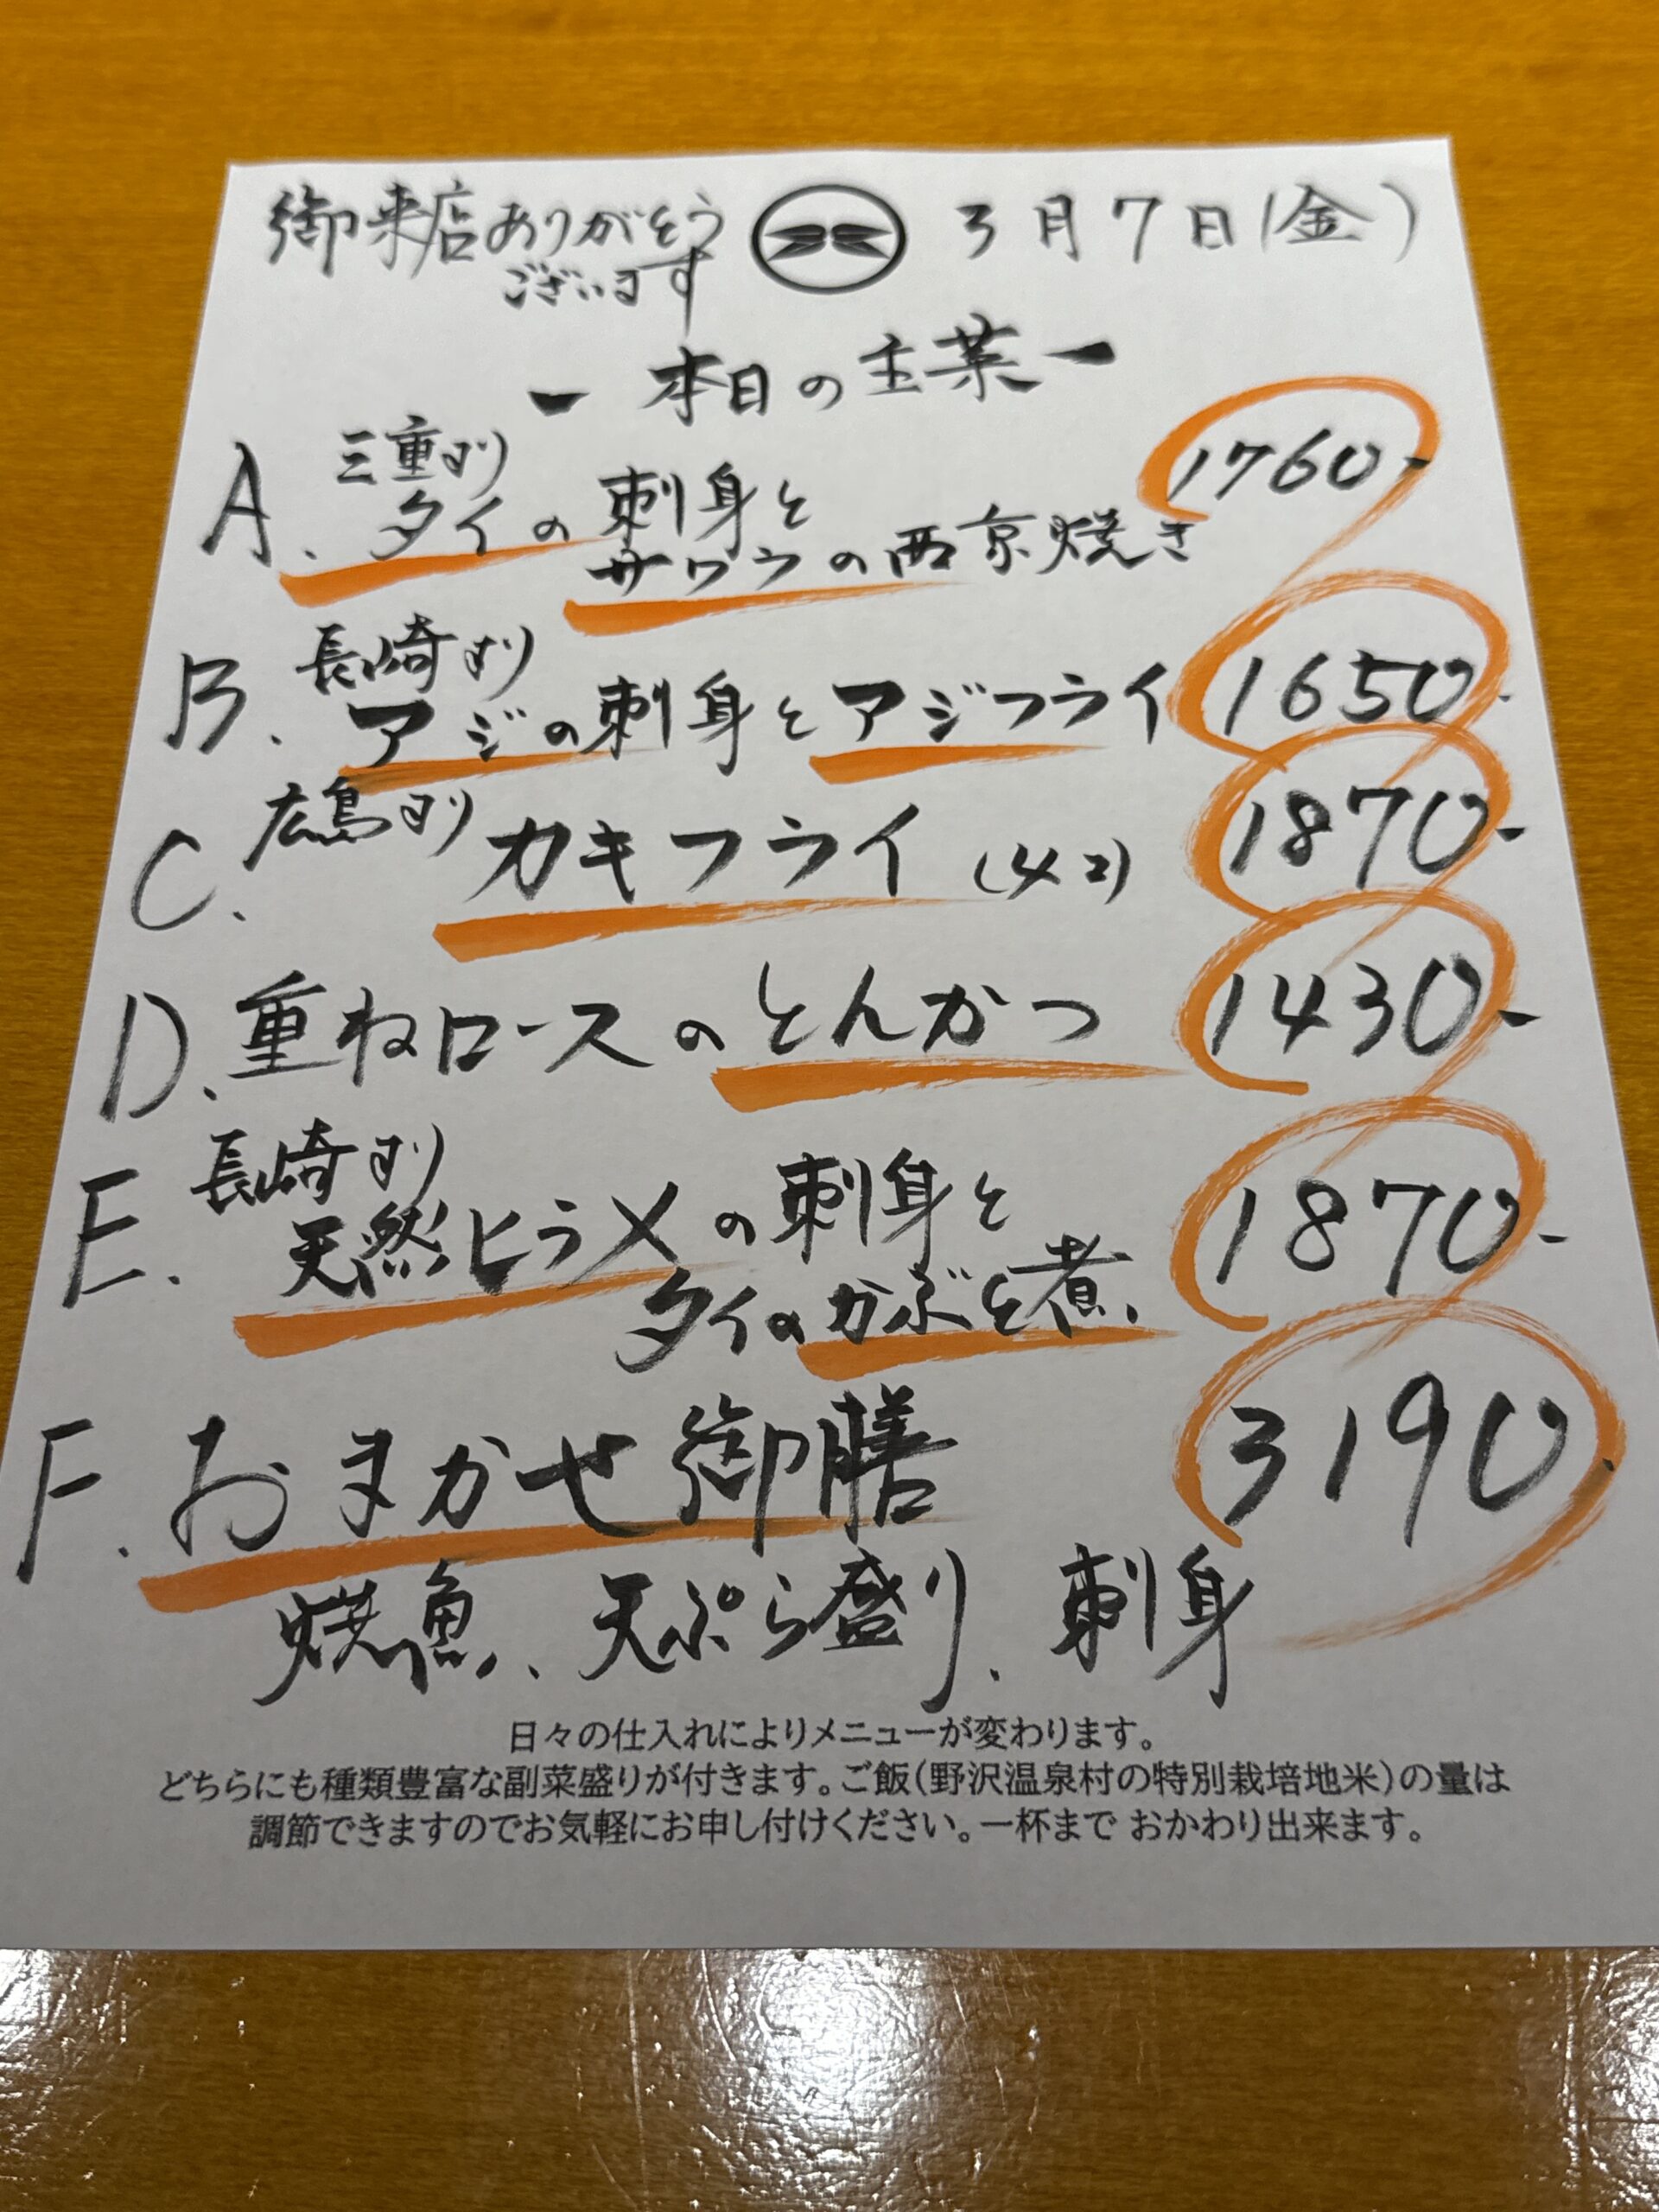 御来店ありがとう
ございます
3月7日(金)
ー本日の主菜ー
A. 三重より
タイの刺身と
サワラの西京焼き
1760-
B. 長崎より
アジの刺身とアジフライ
1650-
C. 広島より
カキフライ(4コ)
1870-
D. 重ねロースのとんかつ
1430-
E. 長崎より
天然ヒラメの刺身と
タイのかぶと煮
1870-
F. おまかせ御膳
3190-
焼魚、天ぷら盛り、刺身
日々の仕入れによりメニューが変わります。
どちらにも種類豊富な副菜盛りが付きます。ご飯(野沢温泉村の特別栽培地米)の量は
調節できますのでお気軽にお申し付けください。一杯まで おかわり出来ます。